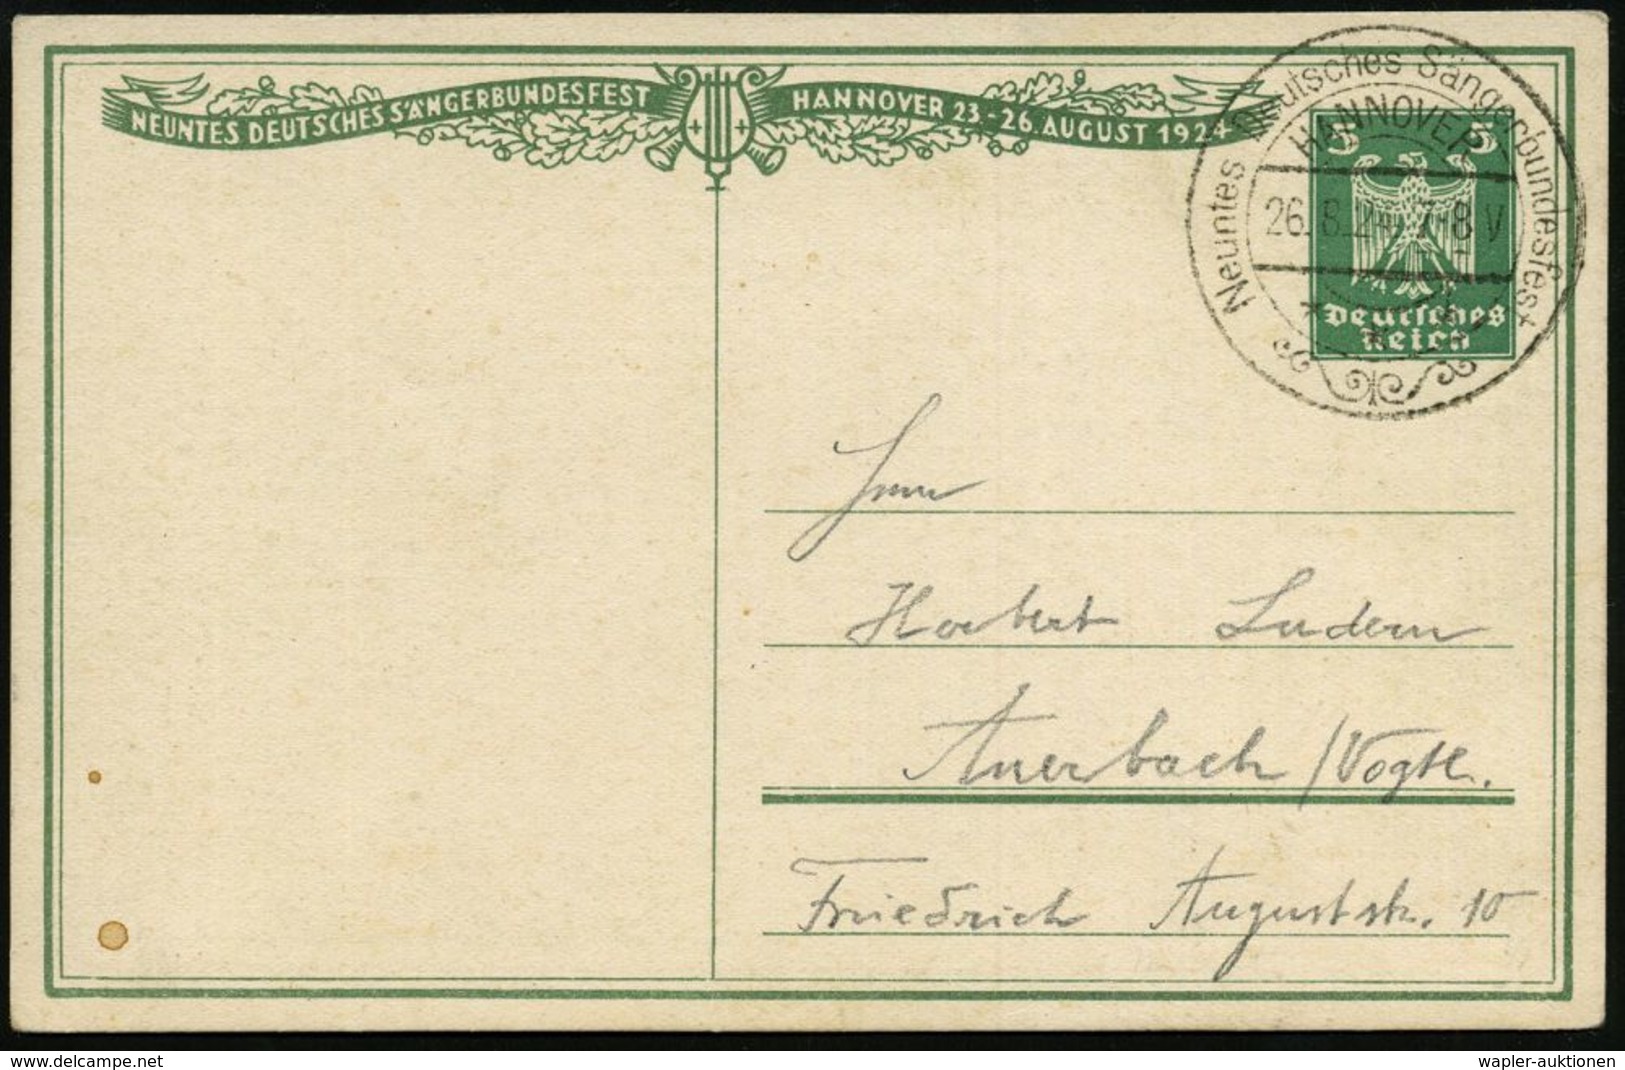 NEUNTES DEUTSCHES SÄNGERBUNDESFEST HANNOVER 23.-26. AUGUST 1924
Neuntes Deutsches Sängerbundesfest
HANNOVER
26.8.24. 7-8 V
5 5
Deutsches
Reich
Herrn
Herbert Ludern
Auerbach /Vogtl.
Friedrich Auguststr. 10
www.delcampe.net
wapler-auktionen